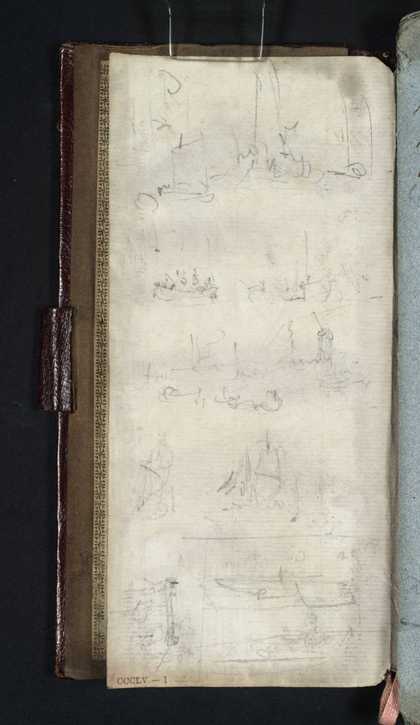 CCCLV — 1